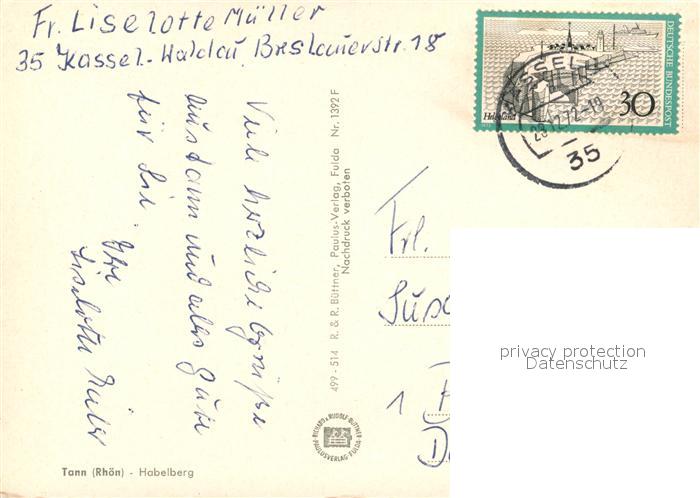 Fr. Liselotte Müller
35 Kassel-Waldau, Breslauerstr. 18
Viele herzliche Grüße
aus Tann und alles Gute
für Sie.
Ihre
Liselotte Müller
499 - 514 R. & R. Büttner, Paulus-Verlag, Fulda Nr. 1392 F
Nachdruck verboten
RICHARD & RUDOLF BÜTTNER
PAULUSVERLAG-FULDA
Tann (Rhön) - Habelberg
DEUTSCHE BUNDESPOST
Helgoland
30
KASSEL
28.12.72-18
35
Frl.
1
privacy protection
Datenschutz